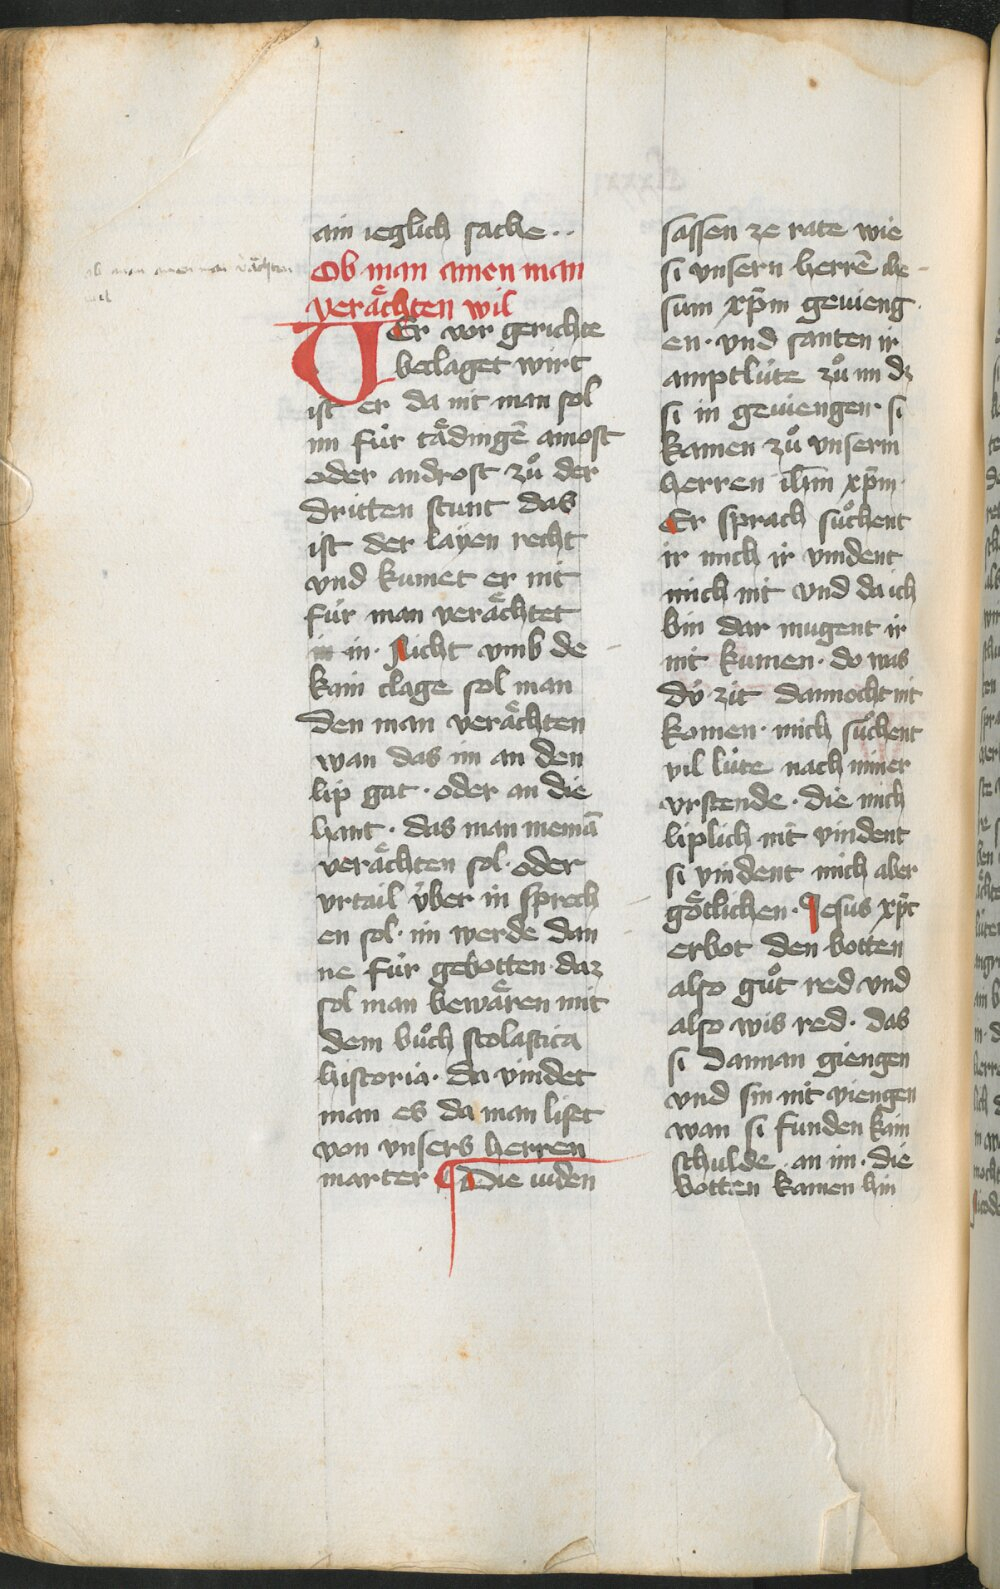 ain ieglich sache..
Ob man ainen man
veraͤchten wil
WEr vor gerichte
beclaget wirt
ist er da nit man sol
im fuͤr taͤdingē ainost
oder androst zuͦ der
dritten stunt das
ist der layen recht
vnd kumet er nit
fuͤr man veraͤchtet
in· Nicht vmb de
kain clage sol man
den man veraͤchten
wan das im an den
lip gat· oder an die
hant· das man niemā
veraͤchten sol· oder
vrtail v̈ber in sprech
en sol· im werde dan
ne fuͤr gebotten· daz
sol man bewaͤren mit
dem buͦch scolastica
historia· da vindet
man es da man liset
von vnsers herren
marter ¶ Die iuden
sassen ze rate wie
si vnsern herrē ihe
sum xp̄m geuieng
en· vnd santen ir
amptluͤte zuͦ im dz
si in geuiengen· si
kamen zuͦ vnserm
herren ih̄m xp̄m·
Er sprach suͦchent
ir mich ir vindent
mich nit vnd da ich
bin dar mugent ir
nit kumen· do was
dv̈ zit dannocht nit
komen· mich suͦchent
vil luͤte nach miner
vrstende· die mich
liplich nit vindent
si vindent mich aber
goͤtlichen· Jesus xp̄c
erbot den botten
also guͦt red vnd
also wis red· das
si dannan giengen
vnd sin nit viengen
wan si funden kain
schulde an im· die
botten kamen hin